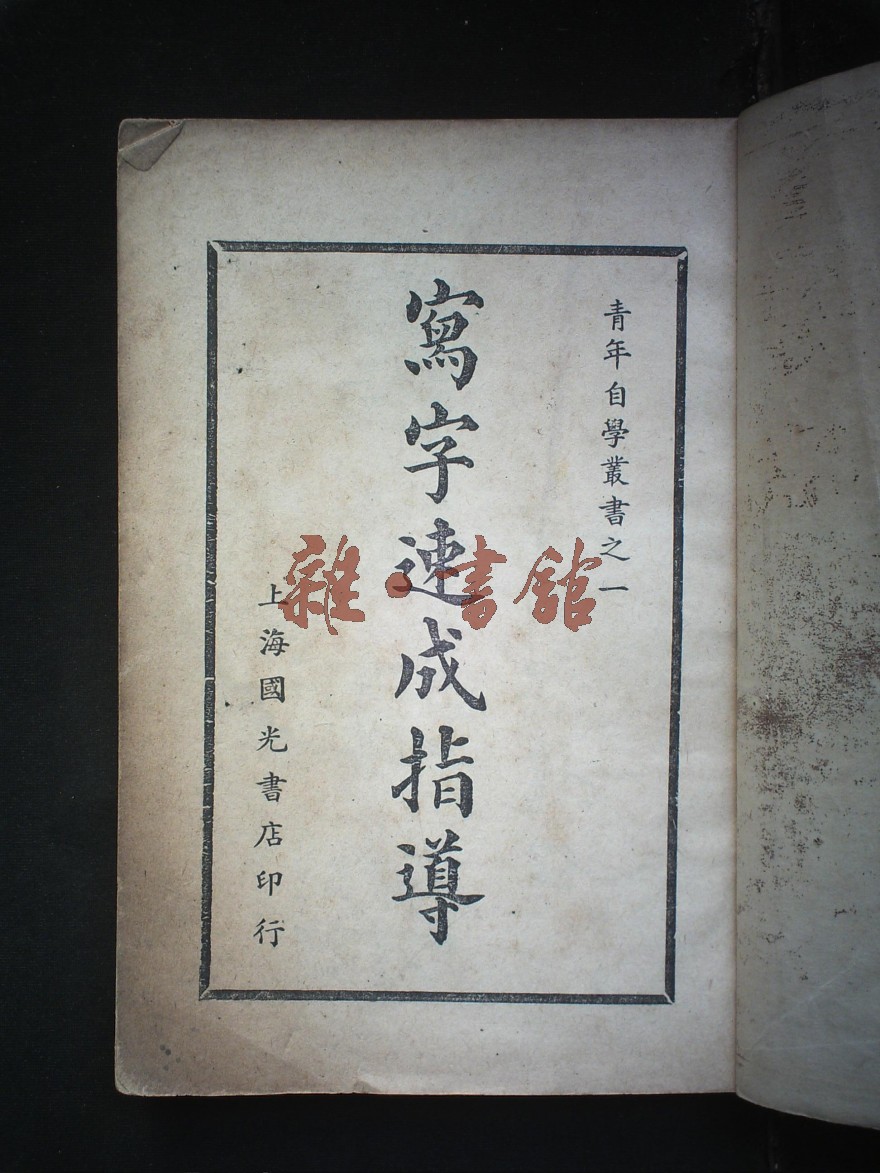 青年自學叢書之一
寫字速成指導
上海國光書店印行
雜·書館